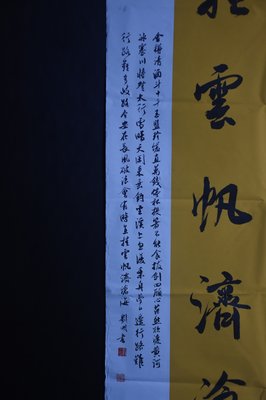 雲帆濟
金樽清酒斗十千玉盤珍饈直萬錢停杯投箸不能食拔劍四顧心茫然欲渡黃河
冰塞川將登太行雪暗天閑來垂釣坐溪上忽復乘舟夢日邊行路難
行路難多歧路今安在長風破浪會有時直挂雲帆濟滄海